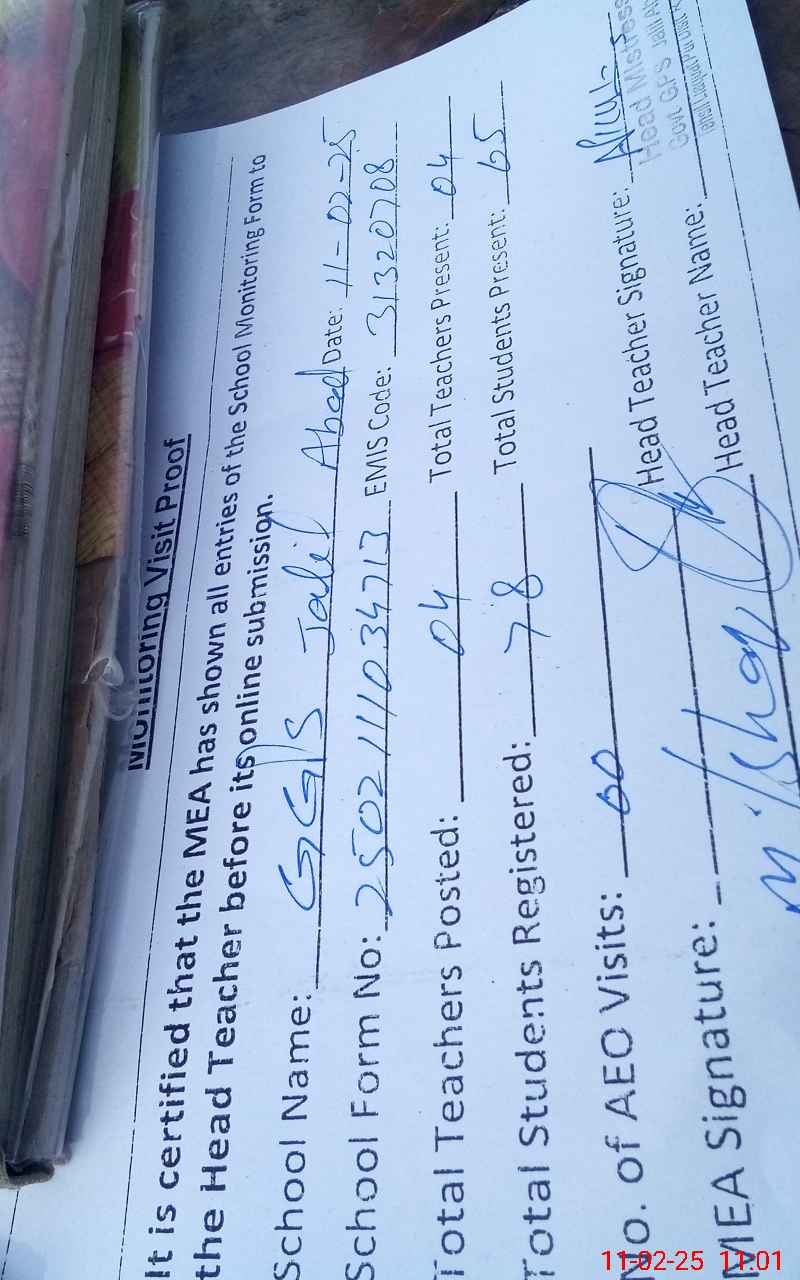 Monitoring Visit Proof
It is certified that the MEA has shown all entries of the School Monitoring Form to
the Head Teacher before its online submission.
School Name: GGPS Jalil Abad Date: 11-02-25
School Form No: 2502111034713 EMIS Code: 31320708
Total Teachers Posted: 04 Total Teachers Present: 04
Total Students Registered: 78 Total Students Present: 65
No. of AEO Visits: 00
Head Teacher Signature:
Head Mistress
MEA Signature: Head Teacher Name:
Govt GPS Jalil
11-02-25 11:01